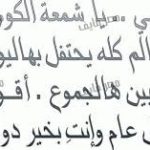 ي .. يا شمعة الكو
الم كله يحتفل بهاليو
بين هالجموع . أقو
ل عام وأنتِ بخير دو